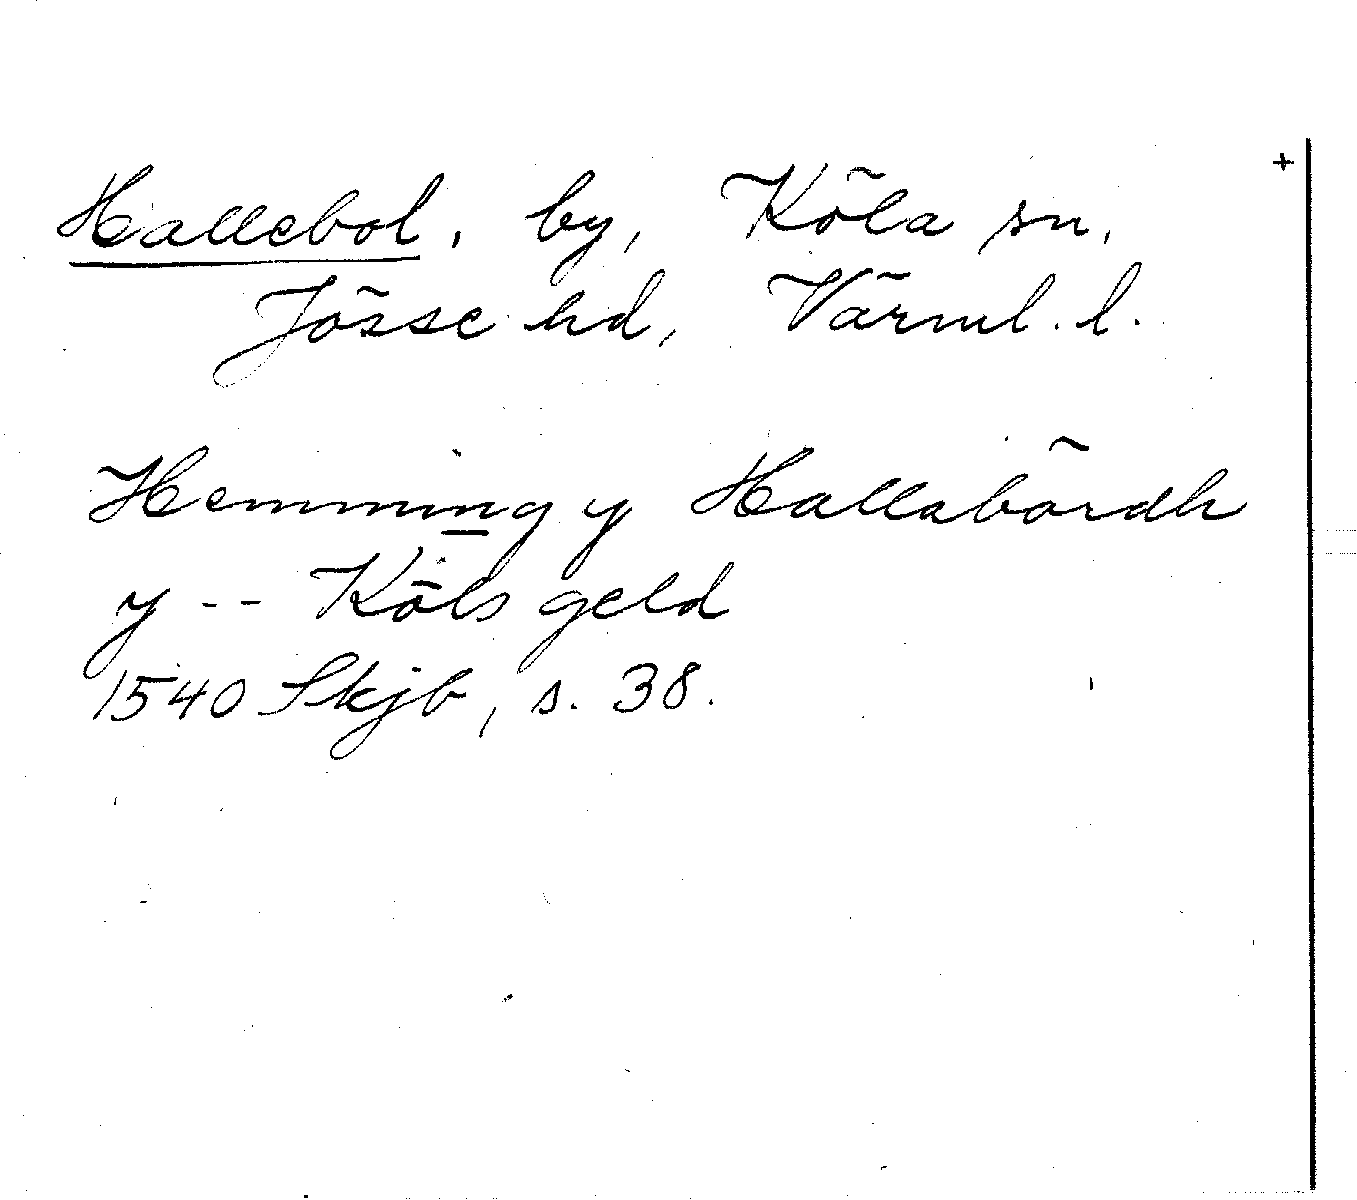 +
Hallebol, by, Köla sn,
Jösse hd, Värml. l.
Hemming y Hallabördh
y -- Köls geld
1540 Skjb, s. 38.